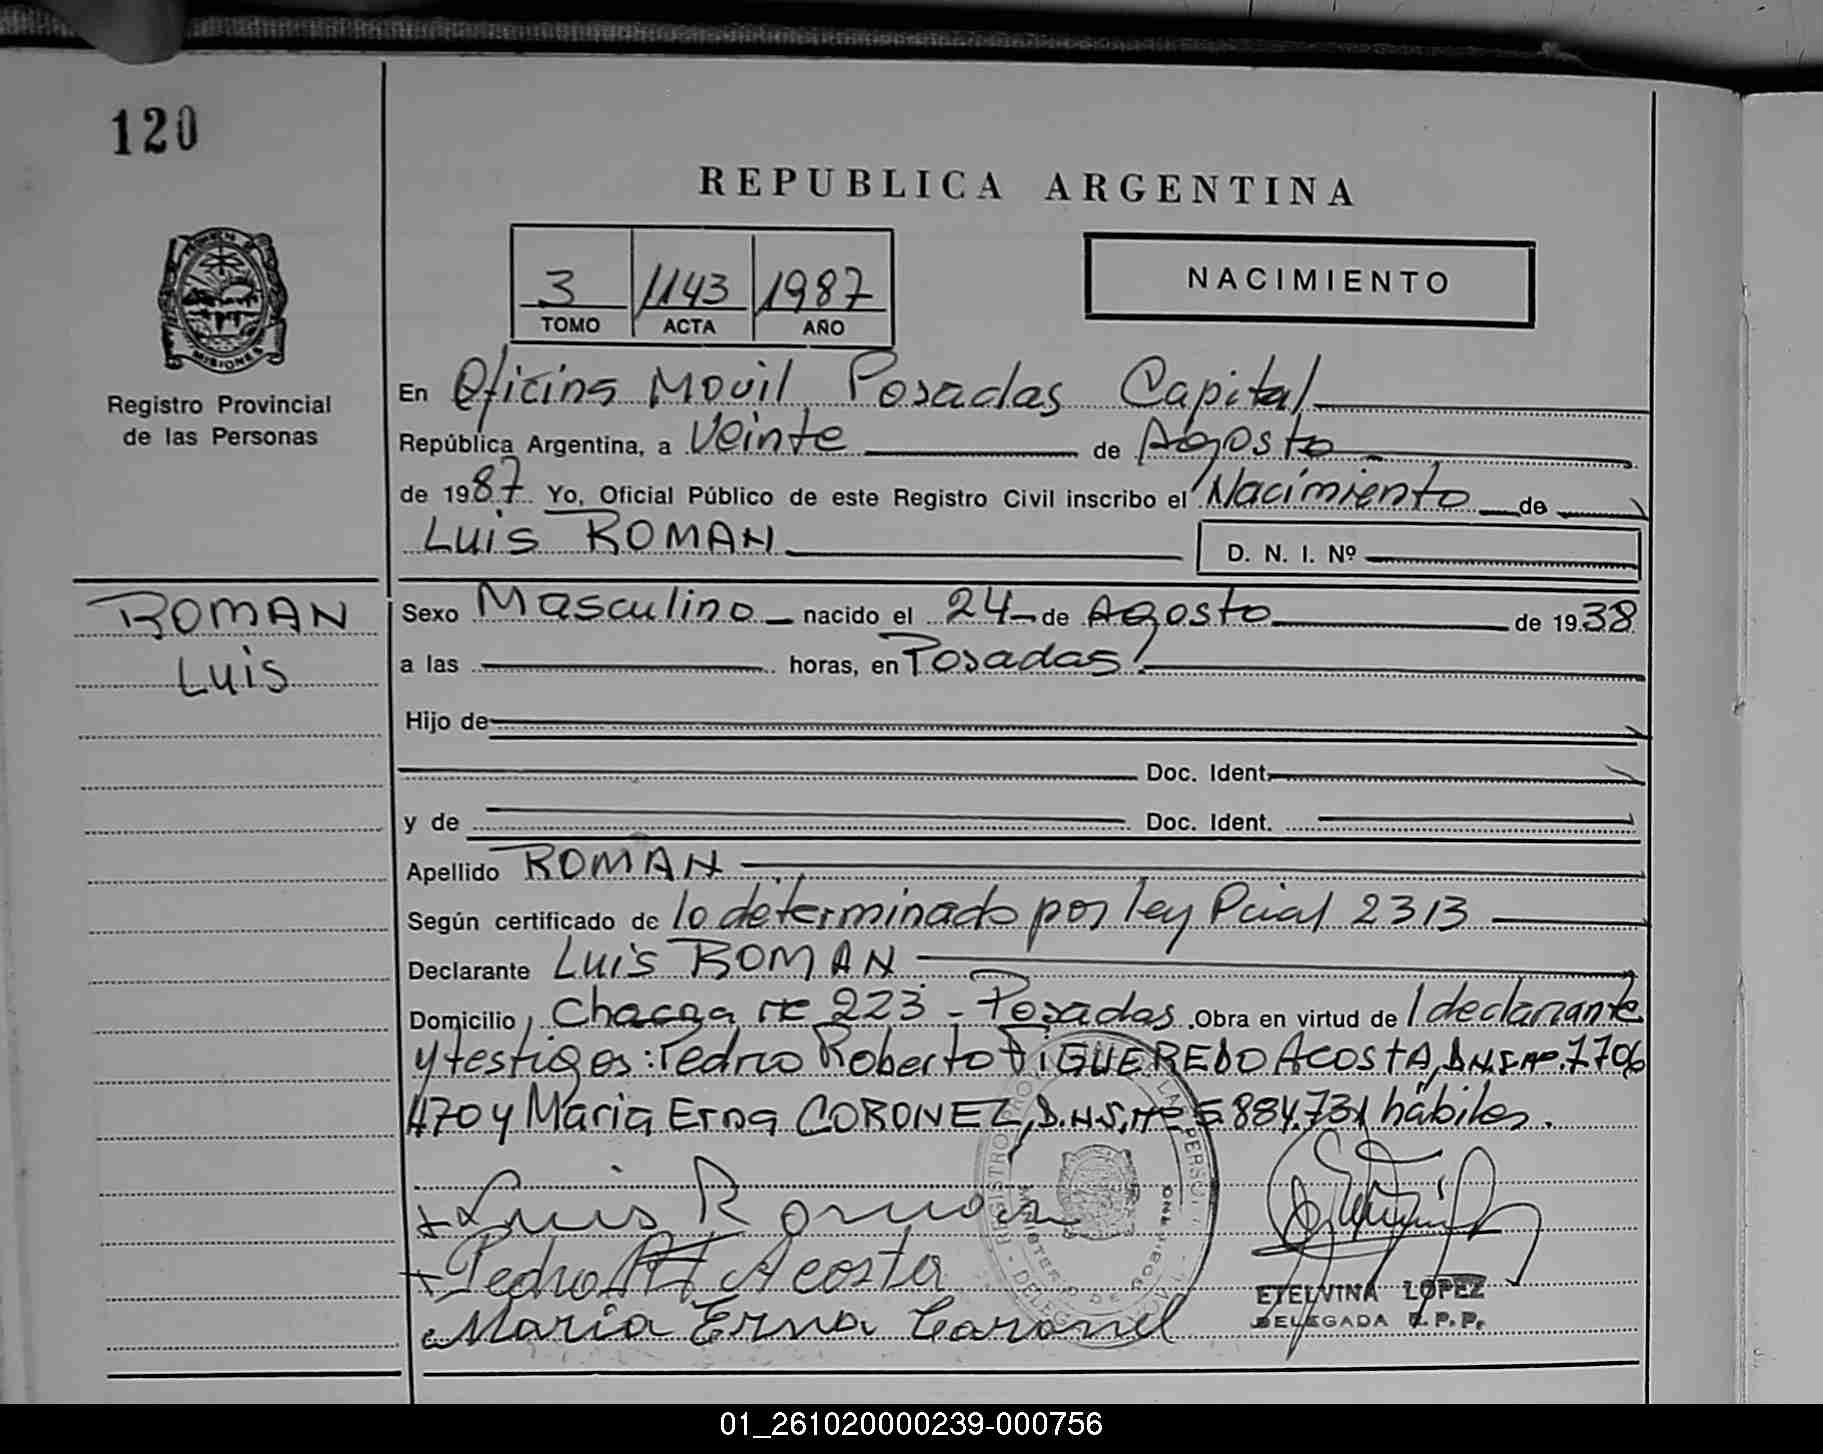 120
REPUBLICA ARGENTINA
3 1143 1987
TOMO ACTA AÑO
NACIMIENTO
MISIONES
Registro Provincial
de las Personas
En Oficina Movil Posadas Capital
República Argentina, a Veinte de Agosto
de 1987 Yo, Oficial Público de este Registro Civil inscribo el Nacimiento de
Luis ROMAN D. N. I. Nº
ROMAN
Luis
Sexo Masculino nacido el 24 de Agosto de 1938
a las horas, en Posadas
Hijo de
Doc. Ident.
y de Doc. Ident.
Apellido ROMAN
Según certificado de lo determinado por ley Pcial 2313
Declarante Luis ROMAN
Domicilio Chacra 223 - Posadas. Obra en virtud de l declarante
y testigos: Pedro Roberto FIGUEREDO ACOSTA, D.N.I. Nº 7.706
470 y Maria Erna CORONEL, D.N.I. Nº 5.884.731 hábiles.
Luis Roman
Pedro Acosta
Maria Erna Coronel
ETELVINA LOPEZ
DELEGADA R.P.P.
01_261020000239-000756